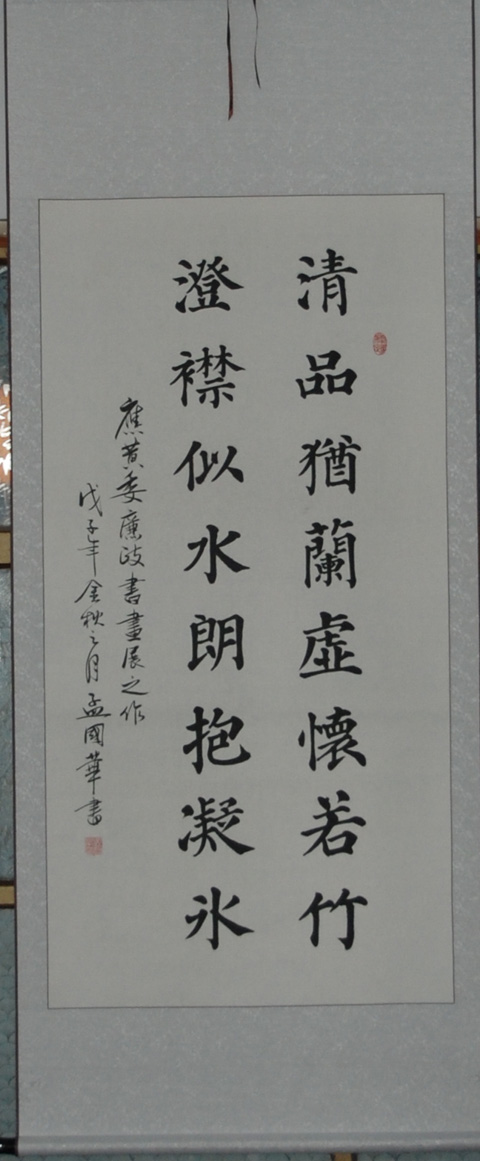 清品猶蘭虛懷若竹
澄襟似水朗抱凝氷
應黄委廉政書畫展之作
戊子年金秋之月孟國華書